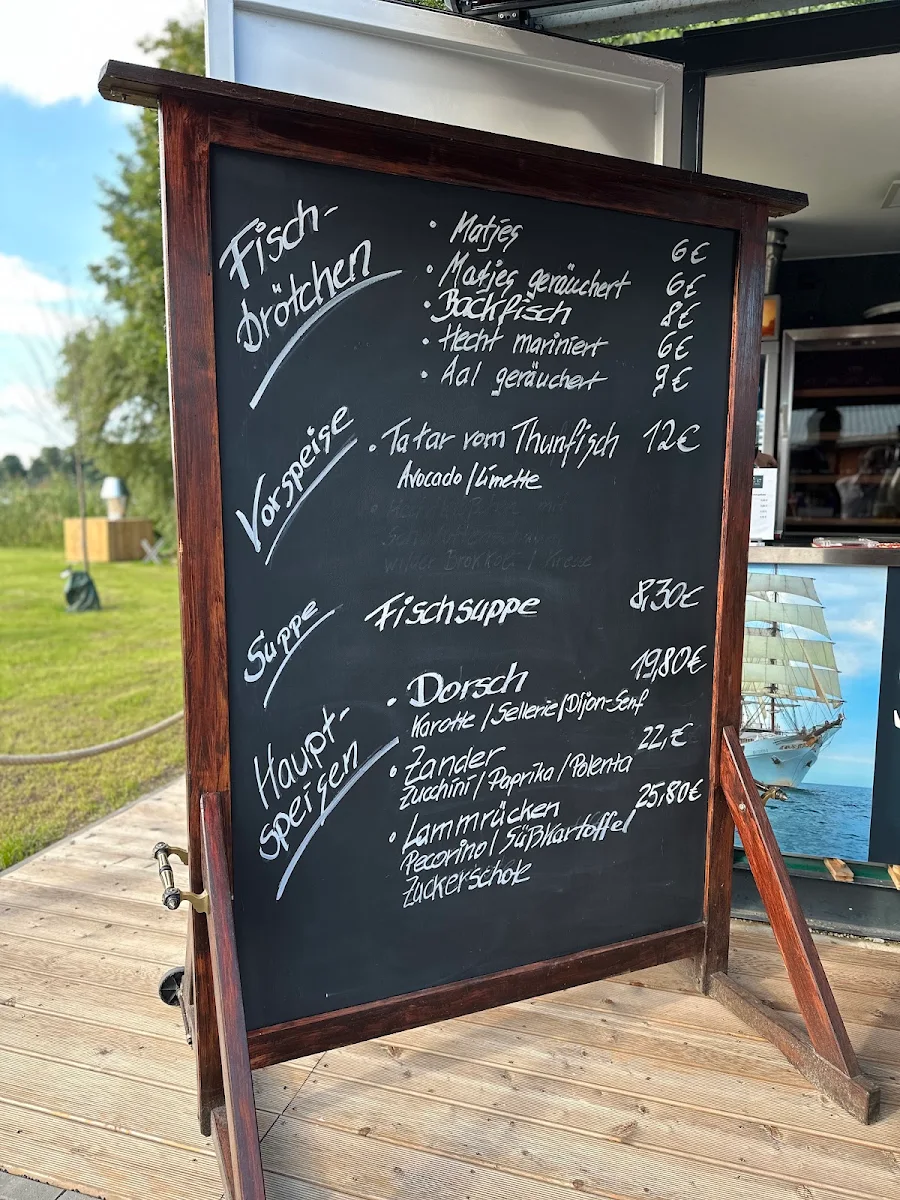 Fisch-
Brötchen
• Matjes 6€
• Matjes geräuchert 6€
• Backfisch 8€
• Hecht mariniert 6€
• Aal geräuchert 9€
Vorspeise
• Tatar vom Thunfisch 12€
Avocado/Limette
wilder Brokkoli / Kresse
Suppe
Fischsuppe 8,30€
Haupt-
speisen
• Dorsch 19,80€
Karotte / Sellerie / Dijon-Senf
• Zander 22,€
Zucchini / Paprika / Polenta
• Lammrücken 25,80€
Pecorino / Süßkartoffel
Zuckerschote